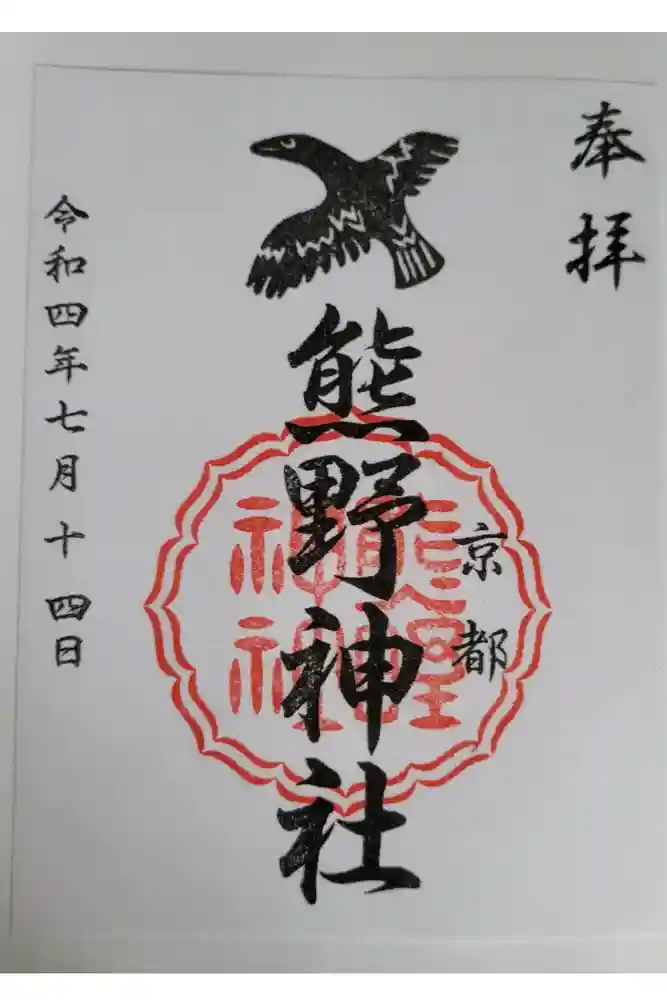 奉拝
京都
熊野神社
熊野
神社
令和四年七月十四日